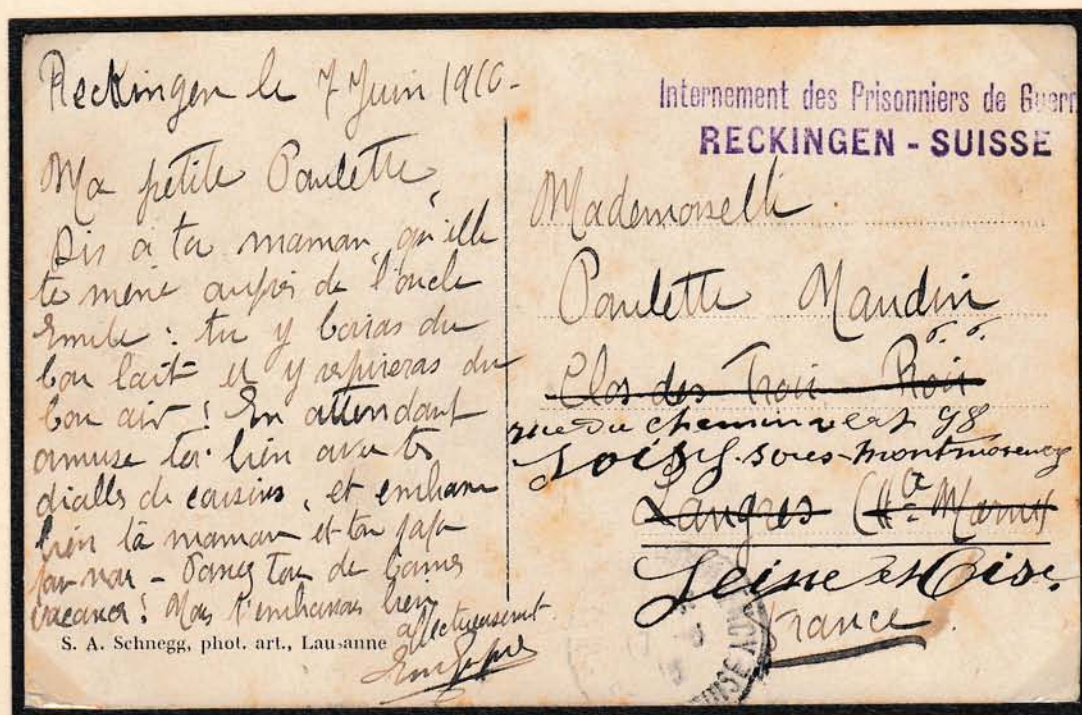 Reckingen le 7 Juin 1916-
Ma petite Paulette,
Dis à ta maman, qu'elle
te mène auprès de l'oncle
Emile : tu y boiras du
bon lait et y respireras du
bon air ! En attendant
amuse toi bien avec tes
diables de cousins, et embrasse
bien ta maman et ton papa
pour nous - Passez tous de bonnes
vacances ! Nous t'embrassons bien
affectueusement.
S. A. Schnegg, phot. art., Lausanne
Internement des Prisonniers de Guerr
RECKINGEN - SUISSE
Mademoiselle
Paulette Maudin
Clos des Trois Rois
rue du chemin vert 98
Soisy-sous-montmorency
Langres (Hte Marne)
Seine et Oise
France